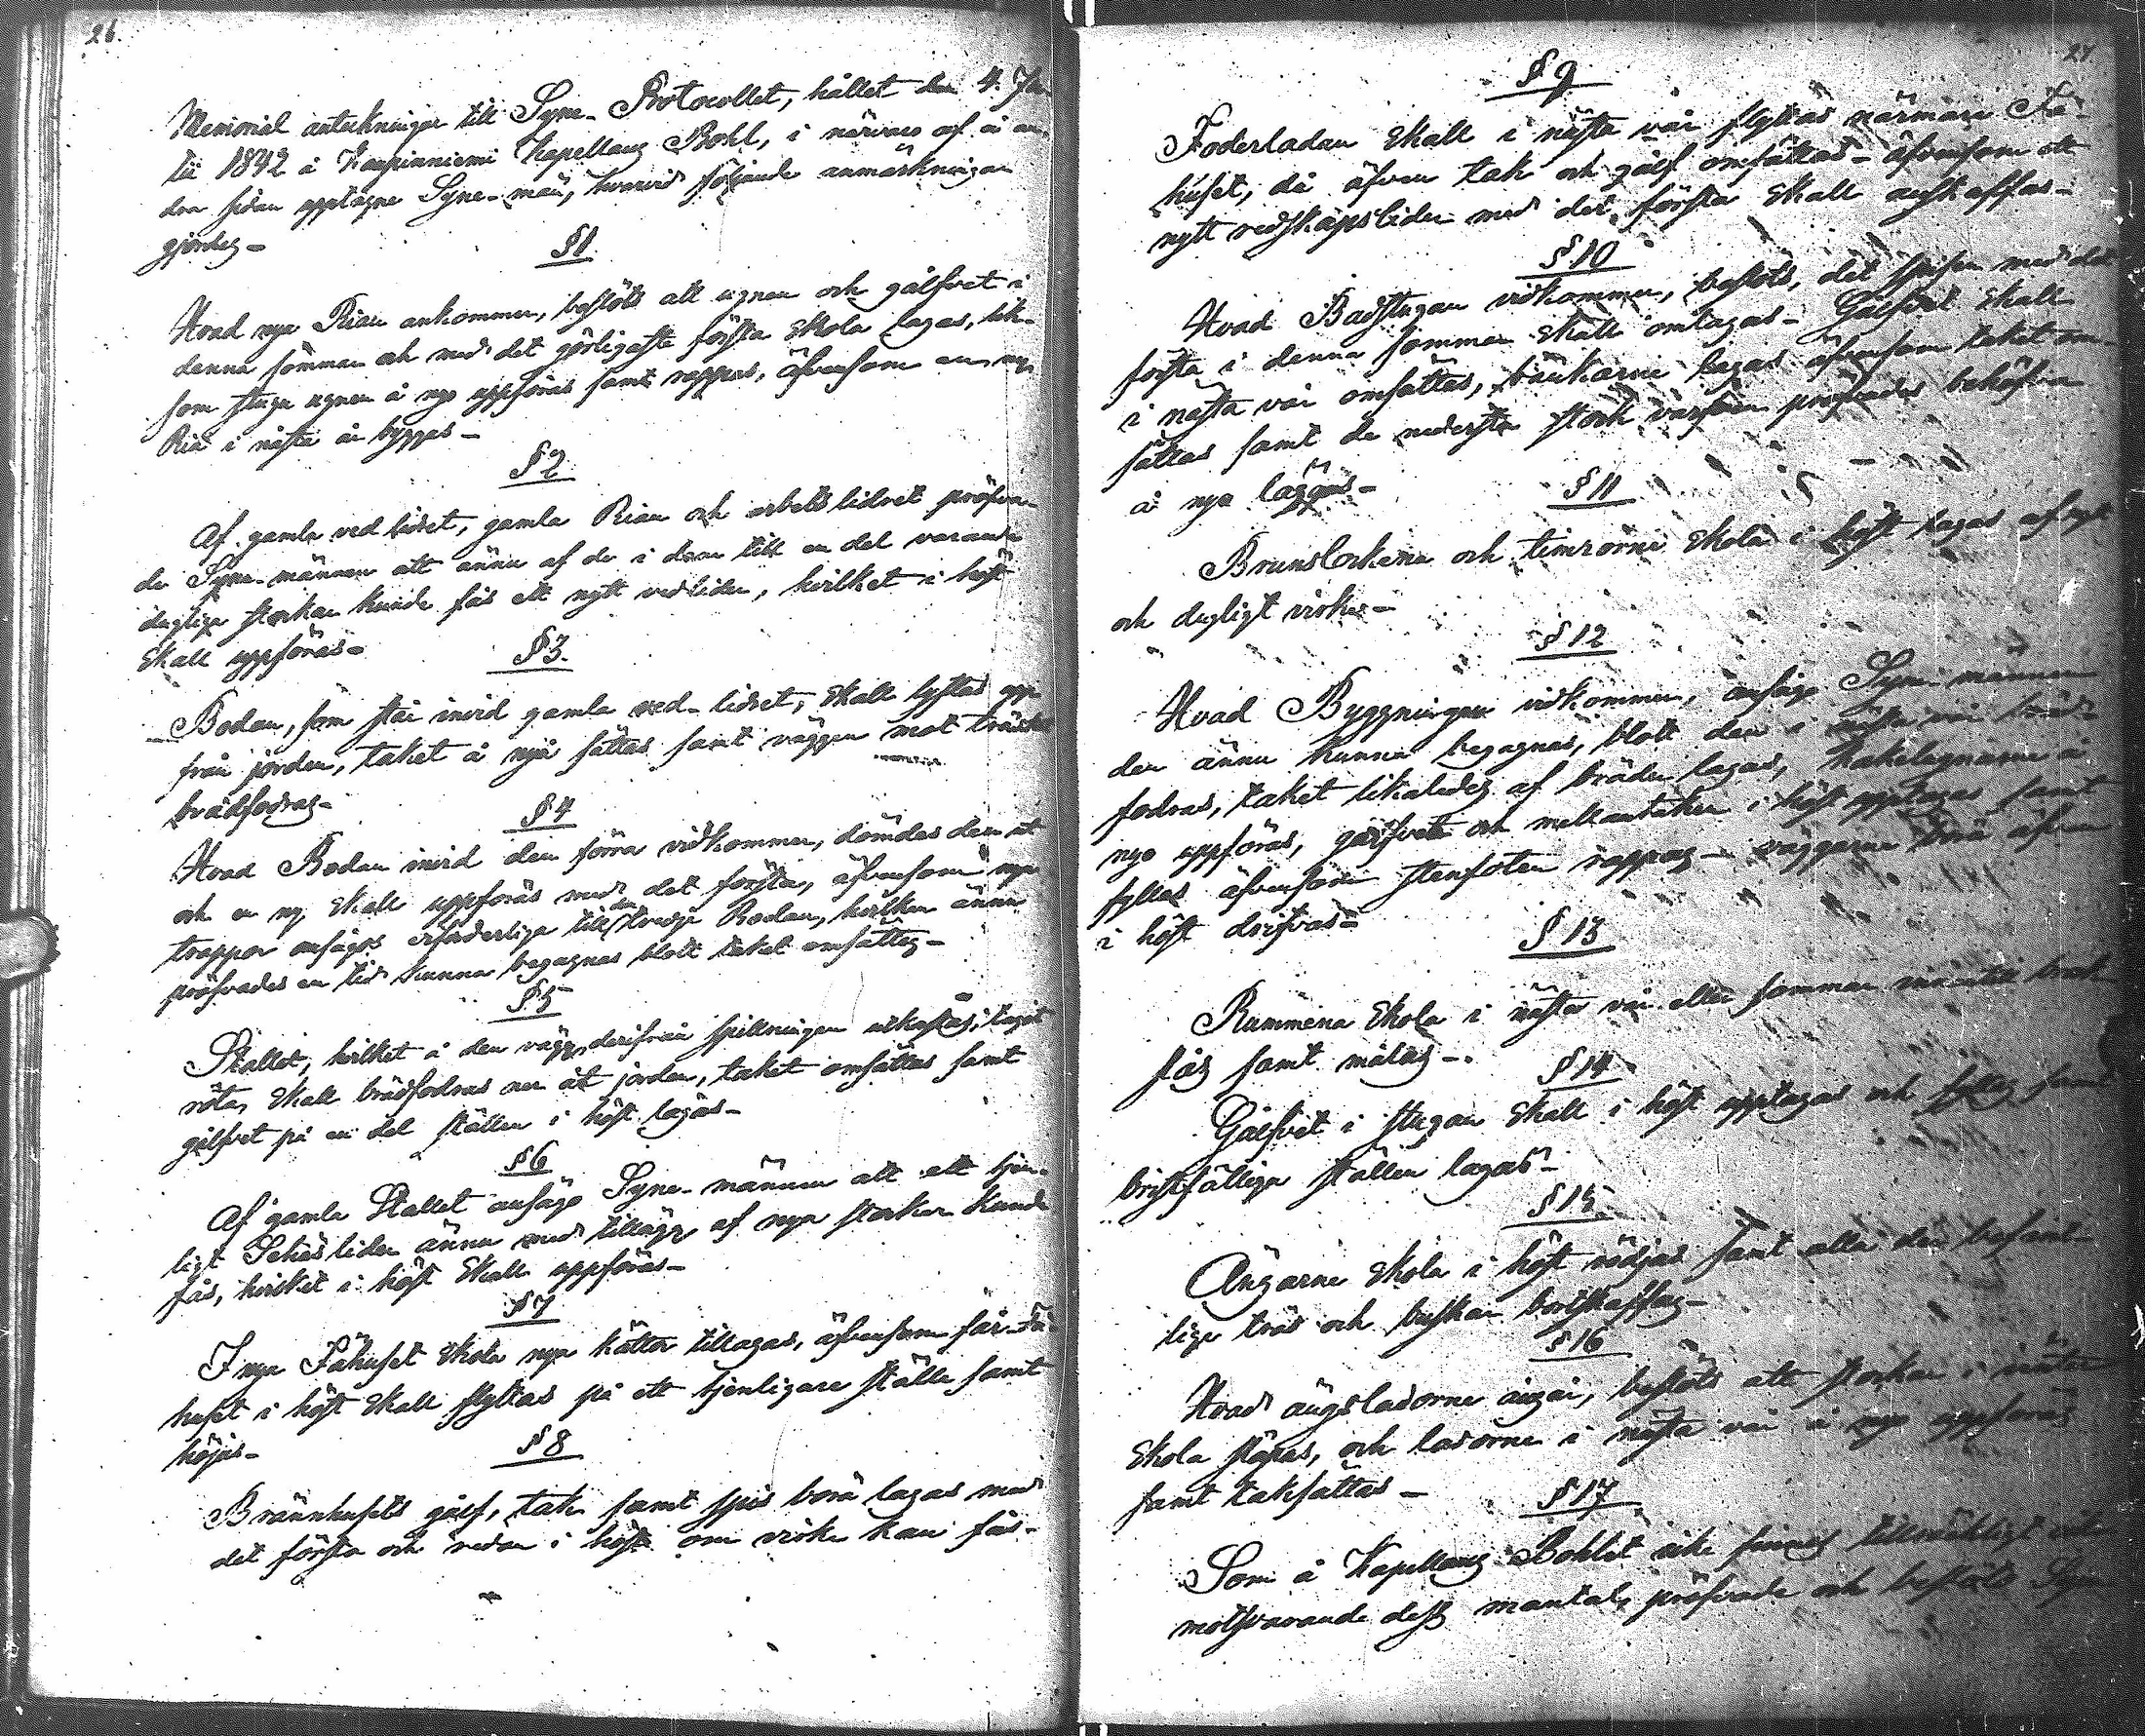 26.
Memorial anteckningar till Syne-Protocollet, hållet den 4. Ju-
lii 1842 å Karpinniemi Kapellans Bohl, i närvaro af å
dra sidan upptagne Syne-män, hvarvid följande anmärkningar
gjordes-
§1
Hvad nya Rian ankommer, beslöts att ugnen och gålfvet i
denna sommar och med det görligaste första skola lagas, lik-
som stugu ugnen å nyo uppföras samt rappas, äfvensom en ny
Ria i nästa år byggas-
§2
Af gamla vedlidret, gamla Rian och arbetslidret pröfva-
de Syne-männen att ännu af de i dem till en del varande
dugliga stockar kunde fås ett nytt vedlider, hvilket i höst
skall uppföras-
§3.
Bodan, som står invid gamla ved-lidret, skall lyftas opp
från jorden, taket å nyo sättas samt väggen mot träsket
brädfodras-
§4
Hvad Bodan invid den förra vidkommer, dömdes den ut
och en ny skall uppföras med det första, äfvensom nya
trappor ansågos erforderliga till den tredje Bodan, hvilken ännu
pröfvades en tid kunna begagnas blott taket omsättes-
§5
Stallet, hvilket å den vägg, derifrån spillningen utkastas, tagit
röta, skall brädfodras ner åt jorden, taket omsättas samt
gålfvet på en del ställen i höst lagas-
§6
Af gamla Stallet ansågo Syne-männen att ett tjen-
ligt Schäslider ännu med tillägg af nya stockar kunde
fås, hvilket i höst skall uppföras-
§7
I nya Fähuset skola nya kättar tillagas, äfvensom får-fä-
huset i höst skall flyttas på ett tjenligare ställe samt
höjas-
§8
Brännhusets gålf, tak samt spis böra lagas med
det första och redan i höst om virke kan fås-
27.
§9
Foderladan skall i nästa vår flyttas närmare Fä-
huset, då äfven tak och gålf omsättas- äfvensom ett
nytt redskapslider med det första skall anskaffas-
§10
Hvad Badstugan vidkommer, beslöts, det spisen med det
första i denna sommar skall omlagas- Gålfvet skall
i nästa vår omsättas, bänkarne lagas äfvensom taket om-
sättas samt de nedersta stock varfven pröfvades behöfva
å nyo läggas-
§11
Brunslocken och timrorne skola i höst lagas af nytt
och dugligt virke-
§12
Hvad Byggningen vidkommer, ansågo Syne-männen
den ännu kunna begagnas, blott den i nästa vår bräd-
fodras, taket likaledes af bräder lagas, kakelugnarne å
nyo uppföras, gålfven och mellantaken i höst upptagas samt
fyllas äfvensom stenfoten rappas- väggarne böra äfven
i höst drifvas-
§13
Rummena skola i nästa vår eller sommar
samt målas-.
§14
Gålfvet i stugan skall i höst upptagas och fyllas samt
bristfälliga ställen lagas-
§15
Ängarne skola i höst rödjas samt alla der befint-
liga träs och buskar bortskaffas-
§16
Hvad ängsladorne angår, beslöts att stockar i vinter
skola släpas, och ladorne i nästa vår å nyo uppföras
samt taksättas-
§17
Som å Kapellans Bohlet icke finnes tillräckligt
motsvarande dess mantal, pröfvade och beslöto Syne